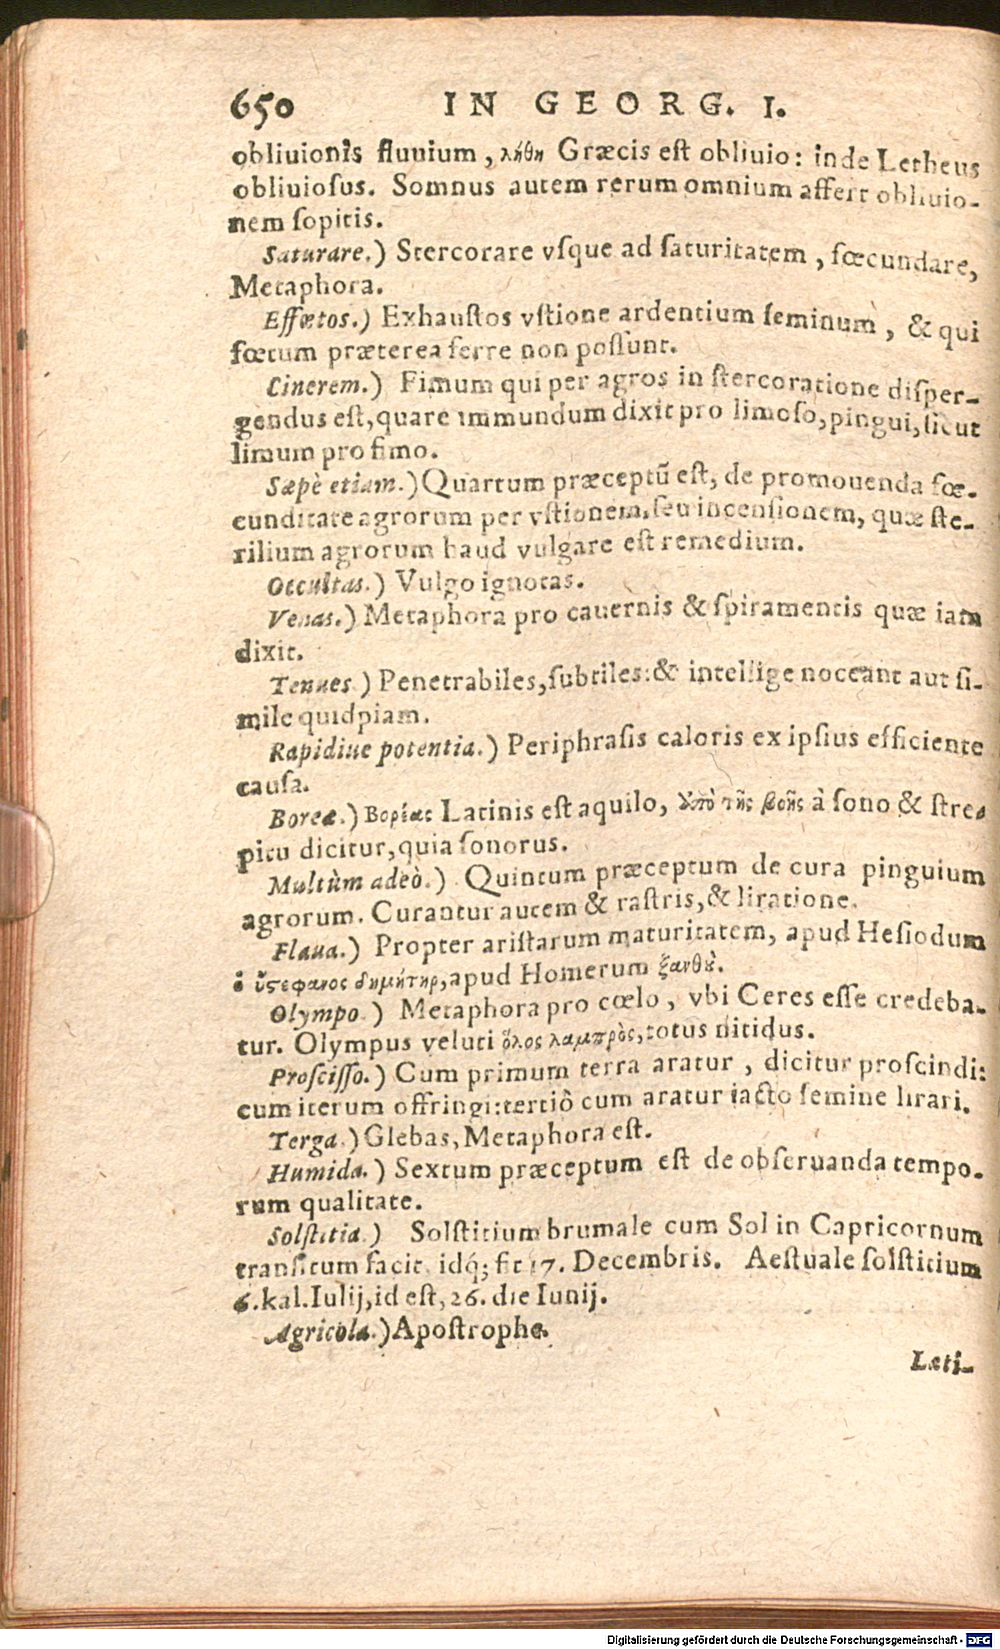 650 IN GEORG. I.
obliuionis fluuium, λήθη Græcis est obliuio: inde Letheus
obliuiosus. Somnus autem rerum omnium affert obliuio-
nem sopitis.
Saturare.) Stercorare vsque ad saturitatem, fœcundare,
Metaphora.
Effœtos.) Exhaustos vstione ardentium seminum, & qui
fœtum præterea ferre non possunt.
Cinerem.) Fimum qui per agros in stercoratione disper-
gendus est, quare immundum dixit pro limoso, pingui, sicut
limum pro fimo.
Sæpè etiam.) Quartum præceptũ est, de promouenda fœ-
cunditate agrorum per vstionem, seu incensionem, quæ ste-
rilium agrorum haud vulgare est remedium.
Occultas.) Vulgo ignotas.
Venas.) Metaphora pro cauernis & spiramentis quæ iam
dixit.
Tenues.) Penetrabiles, subtiles: & intellige noceant aut si-
mile quidpiam.
Rapidiue potentia.) Periphrasis caloris ex ipsius efficiente
causa.
Boreæ.) Βορέας Latinis est aquilo, ὑπὸ τῆς βοῆς à sono & stre-
pitu dicitur, quia sonorus.
Multùm adeò.) Quintum præceptum de cura pinguium
agrorum. Curantur autem & rastris, & liratione.
Flaua.) Propter aristarum maturitatem, apud Hesiodum
δημήτηρ, apud Homerum ξανθὴ.
Olympo.) Metaphora pro cœlo, vbi Ceres esse credeba-
tur. Olympus veluti ὅλος λαμπρὸς, totus nitidus.
Proscisso.) Cum primum terra aratur, dicitur proscindi:
cum iterum offringi: tertiò cum aratur iacto semine lirari.
Terga.) Glebas, Metaphora est.
Humida.) Sextum præceptum est de obseruanda tempo-
rum qualitate.
Solstitia.) Solstitium brumale cum Sol in Capricornum
transitum facit, idq́; fit 17. Decembris. Aestuale solstitium
6. kal. Iulij, id est, 26. die Iunij.
Agricolæ.) Apostrophe.
Læti-
Digitalisierung gefördert durch die Deutsche Forschungsgemeinschaft - DFG